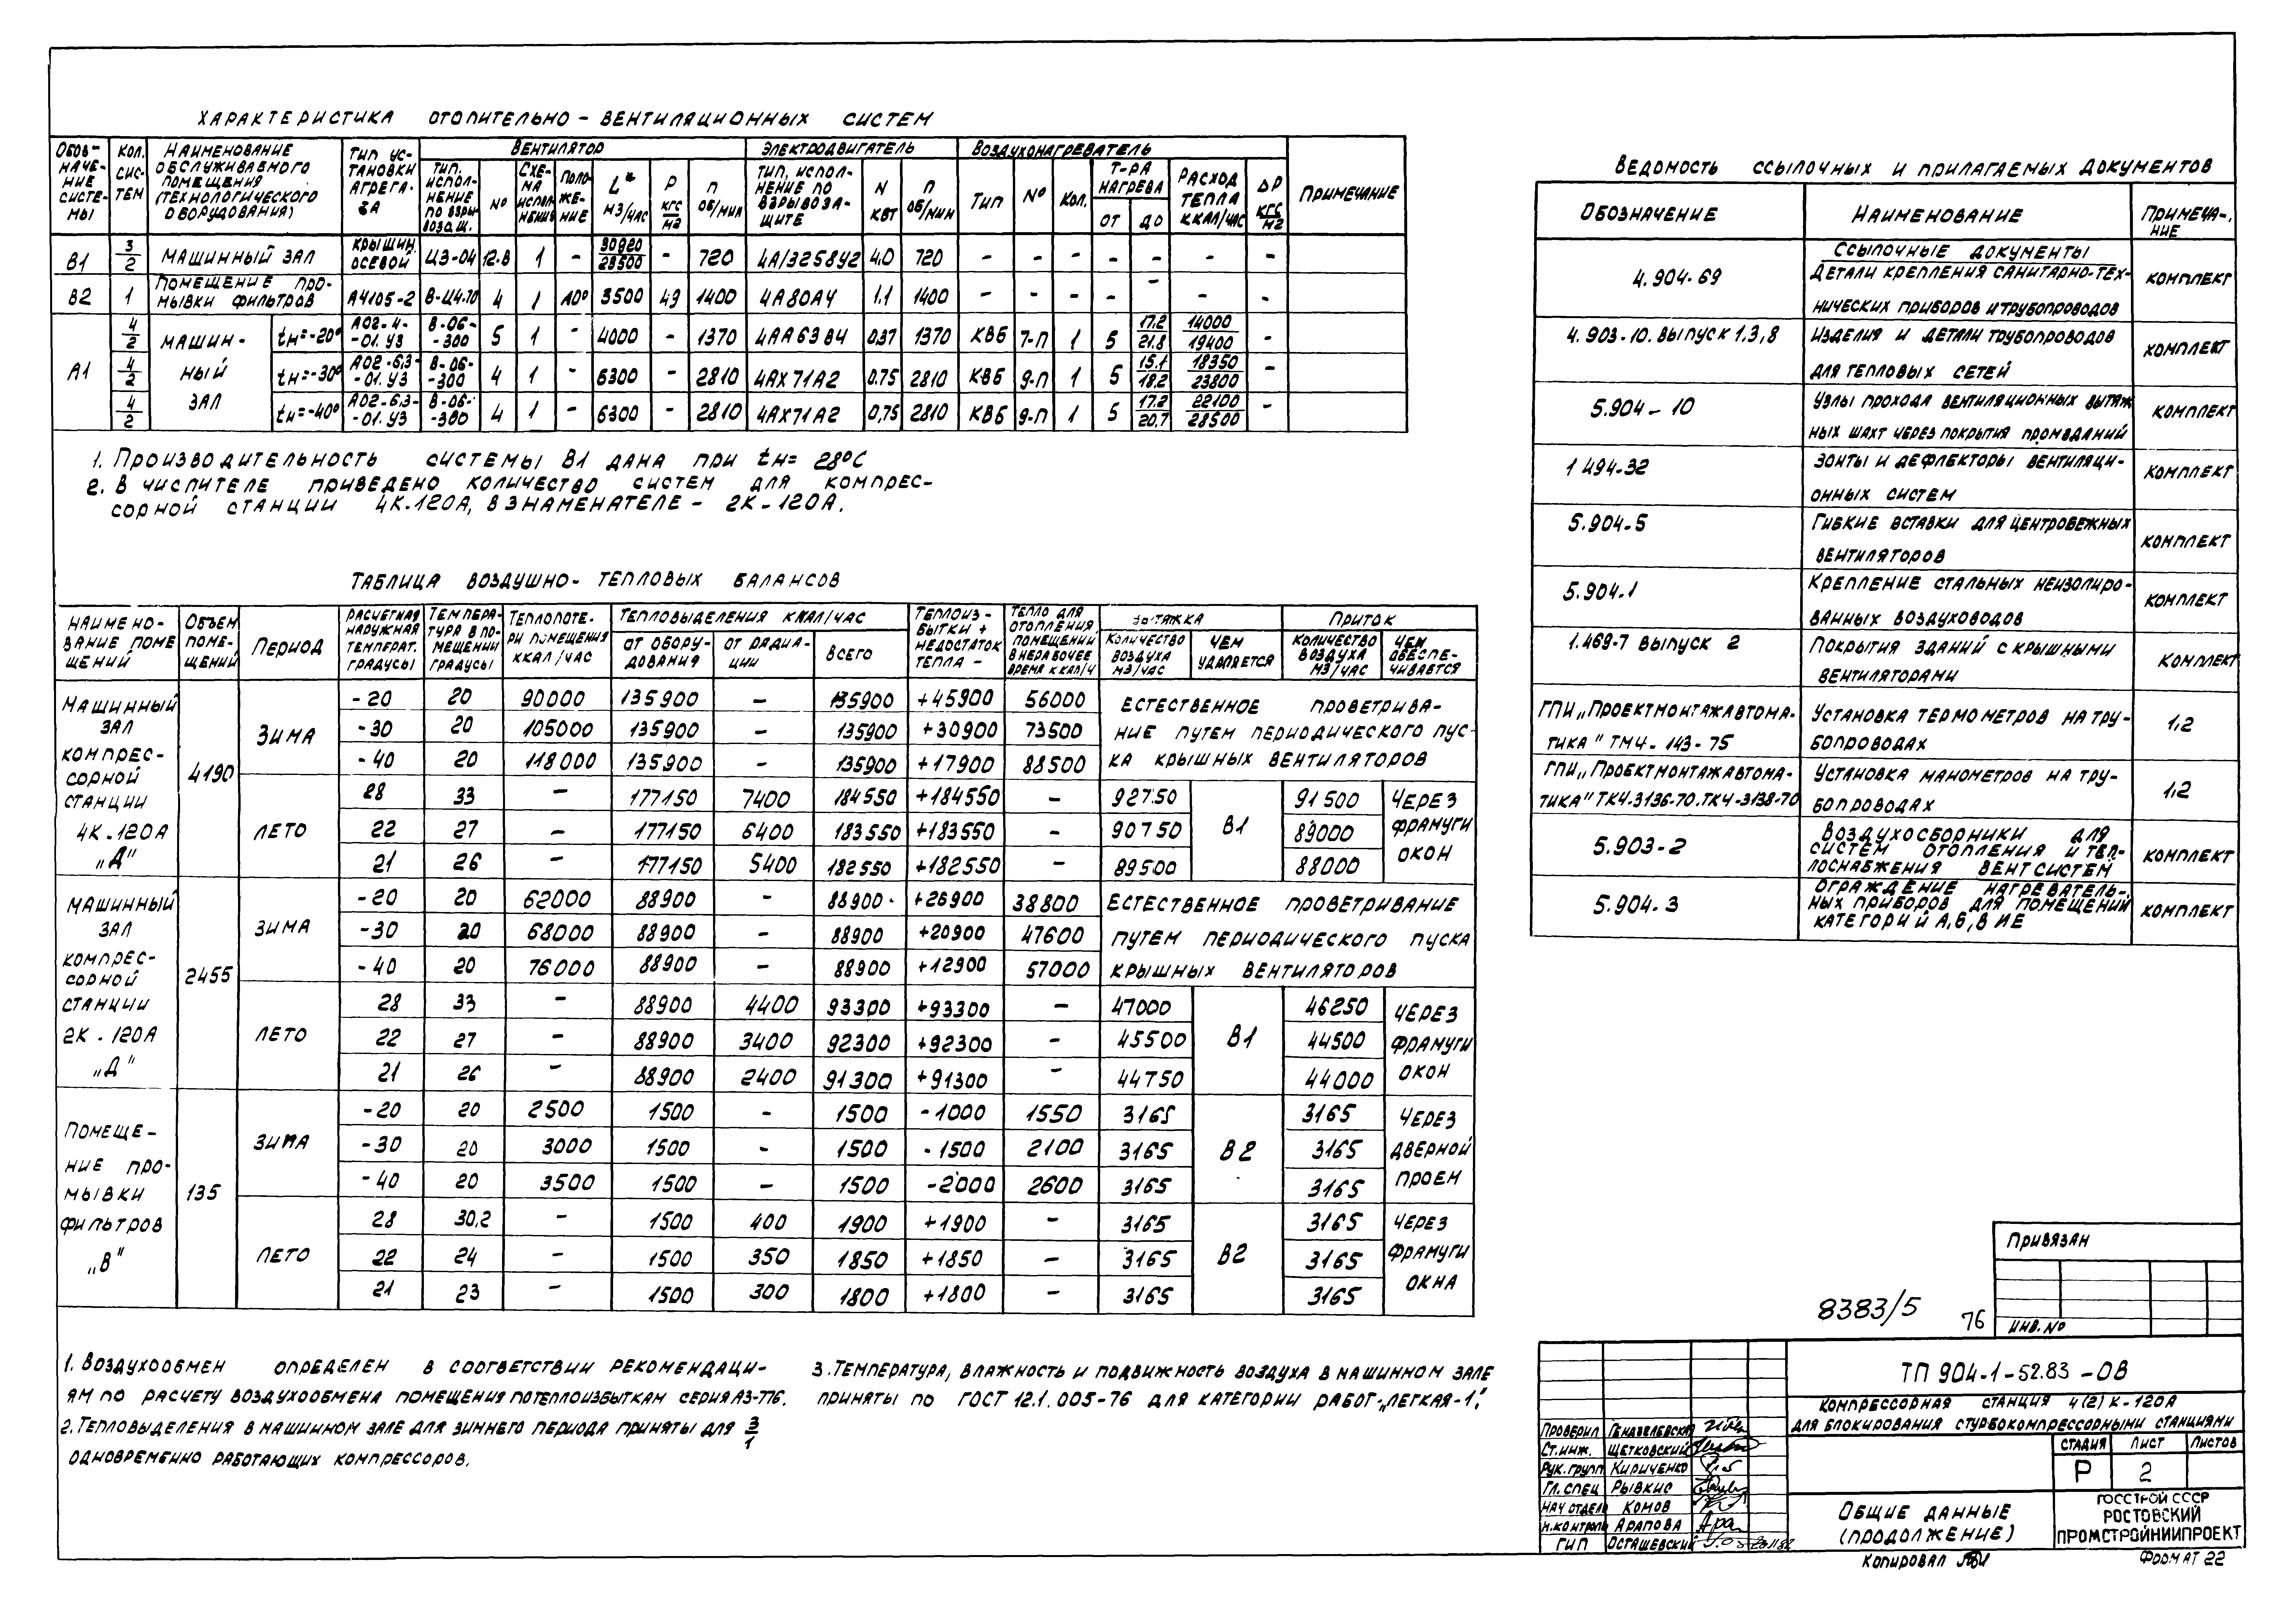 ХАРАКТЕРИСТИКА ОТОПИТЕЛЬНО-ВЕНТИЛЯЦИОННЫХ СИСТЕМ
ОБОЗНАЧЕНИЕ СИСТЕМЫ КОЛ. СИСТЕМ НАИМЕНОВАНИЕ ОБСЛУЖИВАЕМОГО ПОМЕЩЕНИЯ (ТЕХНОЛОГИЧЕСКОГО ОБОРУДОВАНИЯ) ТИП УСТАНОВКИ АГРЕГАТА ВЕНТИЛЯТОР ЭЛЕКТРОДВИГАТЕЛЬ ВОЗДУХОНАГРЕВАТЕЛЬ ПРИМЕЧАНИЕ
ТИП, ИСПОЛНЕНИЕ ПО ВЗРЫВОЗАЩ. № СХЕМА ИСПОЛНЕНИЯ ПОЛОЖЕНИЕ L* М3/ЧАС Р КГС/М2 П ОБ/МИН ТИП, ИСПОЛНЕНИЕ ПО ВЗРЫВОЗАЩИТЕ N КВТ П ОБ/МИН ТИП № КОЛ. Т-РА НАГРЕВА ОТ ДО РАСХОД ТЕПЛА ККАЛ/ЧАС ΔР КГС/М2
В1 3/2 МАШИННЫЙ ЗАЛ КРЫШН. ОСЕВОЙ ЦЗ-04 12.8 1 - /28500 - 720 4.0 720 - - - - - - -
В2 1 ПОМЕЩЕНИЕ ПРОМЫВКИ ФИЛЬТРОВ А4105-2 В-Ц4-70 4 1 3500 49 1400 4А80А4 1.1 1400 - - - - - - -
А1 МАШИННЫЙ ЗАЛ
4/2 tн=-20° А02-4-01.У3 В-06-300 5 1 - 4000 - 1370 4АА63В4 0.37 1370 КВБ 7-П 1 5 17.2/21.8 14000/19400 -
4/2 tн=-30° А02-6,3-01.У3 В-06-300 4 1 - 6300 - 2810 4АХ71А2 0.75 2810 КВБ 9-П 1 5 15.1/18.2 18350/23800 -
4/2 tн=-40° А02-6,3-01.У3 В-06-300 4 1 - 6300 - 2810 4АХ71А2 0,75 2810 КВБ 9-П 1 5 17.2/20,7 22100/28500 -
1. ПРОИЗВОДИТЕЛЬНОСТЬ СИСТЕМЫ В1 ДАНА ПРИ tн= 28°С
2. В ЧИСЛИТЕЛЕ ПРИВЕДЕНО КОЛИЧЕСТВО СИСТЕМ ДЛЯ КОМПРЕС-
СОРНОЙ СТАНЦИИ 4К-120А, В ЗНАМЕНАТЕЛЕ - 2К-120А.
ТАБЛИЦА ВОЗДУШНО-ТЕПЛОВЫХ БАЛАНСОВ
НАИМЕНОВАНИЕ ПОМЕЩЕНИЙ ОБЪЕМ ПОМЕЩЕНИЙ ПЕРИОД РАСЧЕТНАЯ НАРУЖНАЯ ТЕМПЕРАТ. ГРАДУСЫ ТЕМПЕРАТУРА В ПОМЕЩЕНИИ ГРАДУСЫ ТЕПЛОПОТЕРИ ПОМЕЩЕНИЯ ККАЛ/ЧАС ТЕПЛОВЫДЕЛЕНИЯ ККАЛ/ЧАС ТЕПЛОИЗБЫТКИ + НЕДОСТАТОК ТЕПЛА - ТЕПЛО ДЛЯ ОТОПЛЕНИЯ ПОМЕЩЕНИЙ В НЕРАБОЧЕЕ ВРЕМЯ ККАЛ/Ч ВЫТЯЖКА ПРИТОК
ОТ ОБОРУДОВАНИЯ ОТ РАДИАЦИИ ВСЕГО КОЛИЧЕСТВО ВОЗДУХА М3/ЧАС ЧЕМ УДАЛЯЕТСЯ КОЛИЧЕСТВО ВОЗДУХА М3/ЧАС ЧЕМ ОБЕСПЕЧИВАЕТСЯ
МАШИННЫЙ ЗАЛ КОМПРЕССОРНОЙ СТАНЦИИ 4К-120А „Д" 4190
ЗИМА -20 20 90000 135900 - 135900 +45900 56000 ЕСТЕСТВЕННОЕ ПРОВЕТРИВА-
-30 20 105000 135900 - 135900 +30900 73500 НИЕ ПУТЕМ ПЕРИОДИЧЕСКОГО ПУС-
-40 20 118000 135900 - 135900 +17900 88500 КА КРЫШНЫХ ВЕНТИЛЯТОРОВ
ЛЕТО 28 33 - 177150 7400 184550 +184550 - 92750 В1 91500 ЧЕРЕЗ ФРАМУГИ ОКОН
22 27 - 177150 6400 183550 +183550 - 90750 89000
21 26 - 177150 5400 182550 +182550 - 89500 88000
МАШИННЫЙ ЗАЛ КОМПРЕССОРНОЙ СТАНЦИИ 2К-120А „Д" 2455
ЗИМА -20 20 62000 88900 - 88900 +26900 38800 ЕСТЕСТВЕННОЕ ПРОВЕТРИВАНИЕ
-30 20 68000 88900 - 88900 +20900 47600 ПУТЕМ ПЕРИОДИЧЕСКОГО ПУСКА
-40 20 76000 88900 - 88900 +12900 57000 КРЫШНЫХ ВЕНТИЛЯТОРОВ
ЛЕТО 28 33 - 88900 4400 93300 +93300 - 47000 В1 46250 ЧЕРЕЗ ФРАМУГИ ОКОН
22 27 - 88900 3400 92300 +92300 - 45500 44500
21 26 - 88900 2400 91300 +91300 - 44750 44000
ПОМЕЩЕНИЕ ПРОМЫВКИ ФИЛЬТРОВ „В" 135
ЗИМА -20 20 2500 1500 - 1500 -1000 1550 3165 В2 3165 ЧЕРЕЗ ДВЕРНОЙ ПРОЕМ
-30 20 3000 1500 - 1500 -1500 2100 3165 3165
-40 20 3500 1500 - 1500 -2000 2600 3165 3165
ЛЕТО 28 30,2 - 1500 400 1900 +1900 - 3165 В2 3165 ЧЕРЕЗ ФРАМУГИ ОКНА
22 24 - 1500 350 1850 +1850 - 3165 3165
21 23 - 1500 300 1800 +1800 - 3165 3165
1. ВОЗДУХООБМЕН ОПРЕДЕЛЕН В СООТВЕТСТВИИ РЕКОМЕНДАЦИ-
ЯМ ПО РАСЧЕТУ ВОЗДУХООБМЕНА ПОМЕЩЕНИЯ ПО ТЕПЛОИЗБЫТКАМ СЕРИЯ А3-776.
2. ТЕПЛОВЫДЕЛЕНИЯ В МАШИННОМ ЗАЛЕ ДЛЯ ЗИМНЕГО ПЕРИОДА ПРИНЯТЫ ДЛЯ 3/1
ОДНОВРЕМЕННО РАБОТАЮЩИХ КОМПРЕССОРОВ.
3. ТЕМПЕРАТУРА, ВЛАЖНОСТЬ И ПОДВИЖНОСТЬ ВОЗДУХА В МАШИННОМ ЗАЛЕ
ПРИНЯТЫ ПО ГОСТ 12.1.005-76 ДЛЯ КАТЕГОРИИ РАБОТ-„ЛЕГКАЯ-1".
ВЕДОМОСТЬ ССЫЛОЧНЫХ И ПРИЛАГАЕМЫХ ДОКУМЕНТОВ
ОБОЗНАЧЕНИЕ НАИМЕНОВАНИЕ ПРИМЕЧА-НИЕ
ССЫЛОЧНЫЕ ДОКУМЕНТЫ
4.904-69 ДЕТАЛИ КРЕПЛЕНИЯ САНИТАРНО-ТЕХ- КОМПЛЕКТ
НИЧЕСКИХ ПРИБОРОВ И ТРУБОПРОВОДОВ
4.903-10. ВЫПУСК 1,3,8 ИЗДЕЛИЯ И ДЕТАЛИ ТРУБОПРОВОДОВ КОМПЛЕКТ
ДЛЯ ТЕПЛОВЫХ СЕТЕЙ
5.904-10 УЗЛЫ ПРОХОДА ВЕНТИЛЯЦИОННЫХ ВЫТЯЖ КОМПЛЕКТ
НЫХ ШАХТ ЧЕРЕЗ ПОКРЫТИЯ ПРОМЗДАНИЙ
1 494-32 ЗОНТЫ И ДЕФЛЕКТОРЫ ВЕНТИЛЯЦИ- КОМПЛЕКТ
ОННЫХ СИСТЕМ
5.904-5 ГИБКИЕ ВСТАВКИ ДЛЯ ЦЕНТРОБЕЖНЫХ КОМПЛЕКТ
ВЕНТИЛЯТОРОВ
5.904-1 КРЕПЛЕНИЕ СТАЛЬНЫХ НЕИЗОЛИРО- КОМПЛЕКТ
ВАННЫХ ВОЗДУХОВОДОВ
1.469-7 ВЫПУСК 2 ПОКРЫТИЯ ЗДАНИЙ С КРЫШНЫМИ КОМПЛЕКТ
ВЕНТИЛЯТОРАМИ
ГПИ „ПРОЕКТМОНТАЖАВТОМА- УСТАНОВКА ТЕРМОМЕТРОВ НА ТРУ- 1,2
ТИКА" ТМ4-143-75 БОПРОВОДАХ
ГПИ „ПРОЕКТМОНТАЖАВТОМА- УСТАНОВКА МАНОМЕТРОВ НА ТРУ- 1,2
ТИКА" ТК4-3136-70.ТК4-3138-70 БОПРОВОДАХ
5.903-2 ВОЗДУХОСБОРНИКИ ДЛЯ КОМПЛЕКТ
СИСТЕМ ОТОПЛЕНИЯ И ТЕП-
ЛОСНАБЖЕНИЯ ВЕНТСИСТЕМ
5.904.3 ОГРАЖДЕНИЕ НАГРЕВАТЕЛЬ- КОМПЛЕКТ
НЫХ ПРИБОРОВ ДЛЯ ПОМЕЩЕНИЙ
КАТЕГОРИЙ А,Б,В И Е
ПРИВЯЗАН
ИНВ. №
8383/5 76
ТП 904-1-52.83 -ОВ
КОМПРЕССОРНАЯ СТАНЦИЯ 4(2)К-120А
ДЛЯ БЛОКИРОВАНИЯ С ТУРБОКОМПРЕССОРНЫМИ СТАНЦИЯМИ
ПРОВЕРИЛ
СТ. ИНЖ. ЩЕТКОВСКИЙ
РУК. ГРУПП КИРИЧЕНКО
ГЛ. СПЕЦ РЫВКИС
НАЧ ОТДЕЛА КОМОВ
Н.КОНТРОЛЬ АРАПОВА
ГИП ОСТАШЕВСКИЙ
СТАДИЯ ЛИСТ ЛИСТОВ
Р 2
ОБЩИЕ ДАННЫЕ
(ПРОДОЛЖЕНИЕ)
ГОССТРОЙ СССР
РОСТОВСКИЙ
ПРОМСТРОЙНИИПРОЕКТ
КОПИРОВАЛ
ФОРМАТ 22